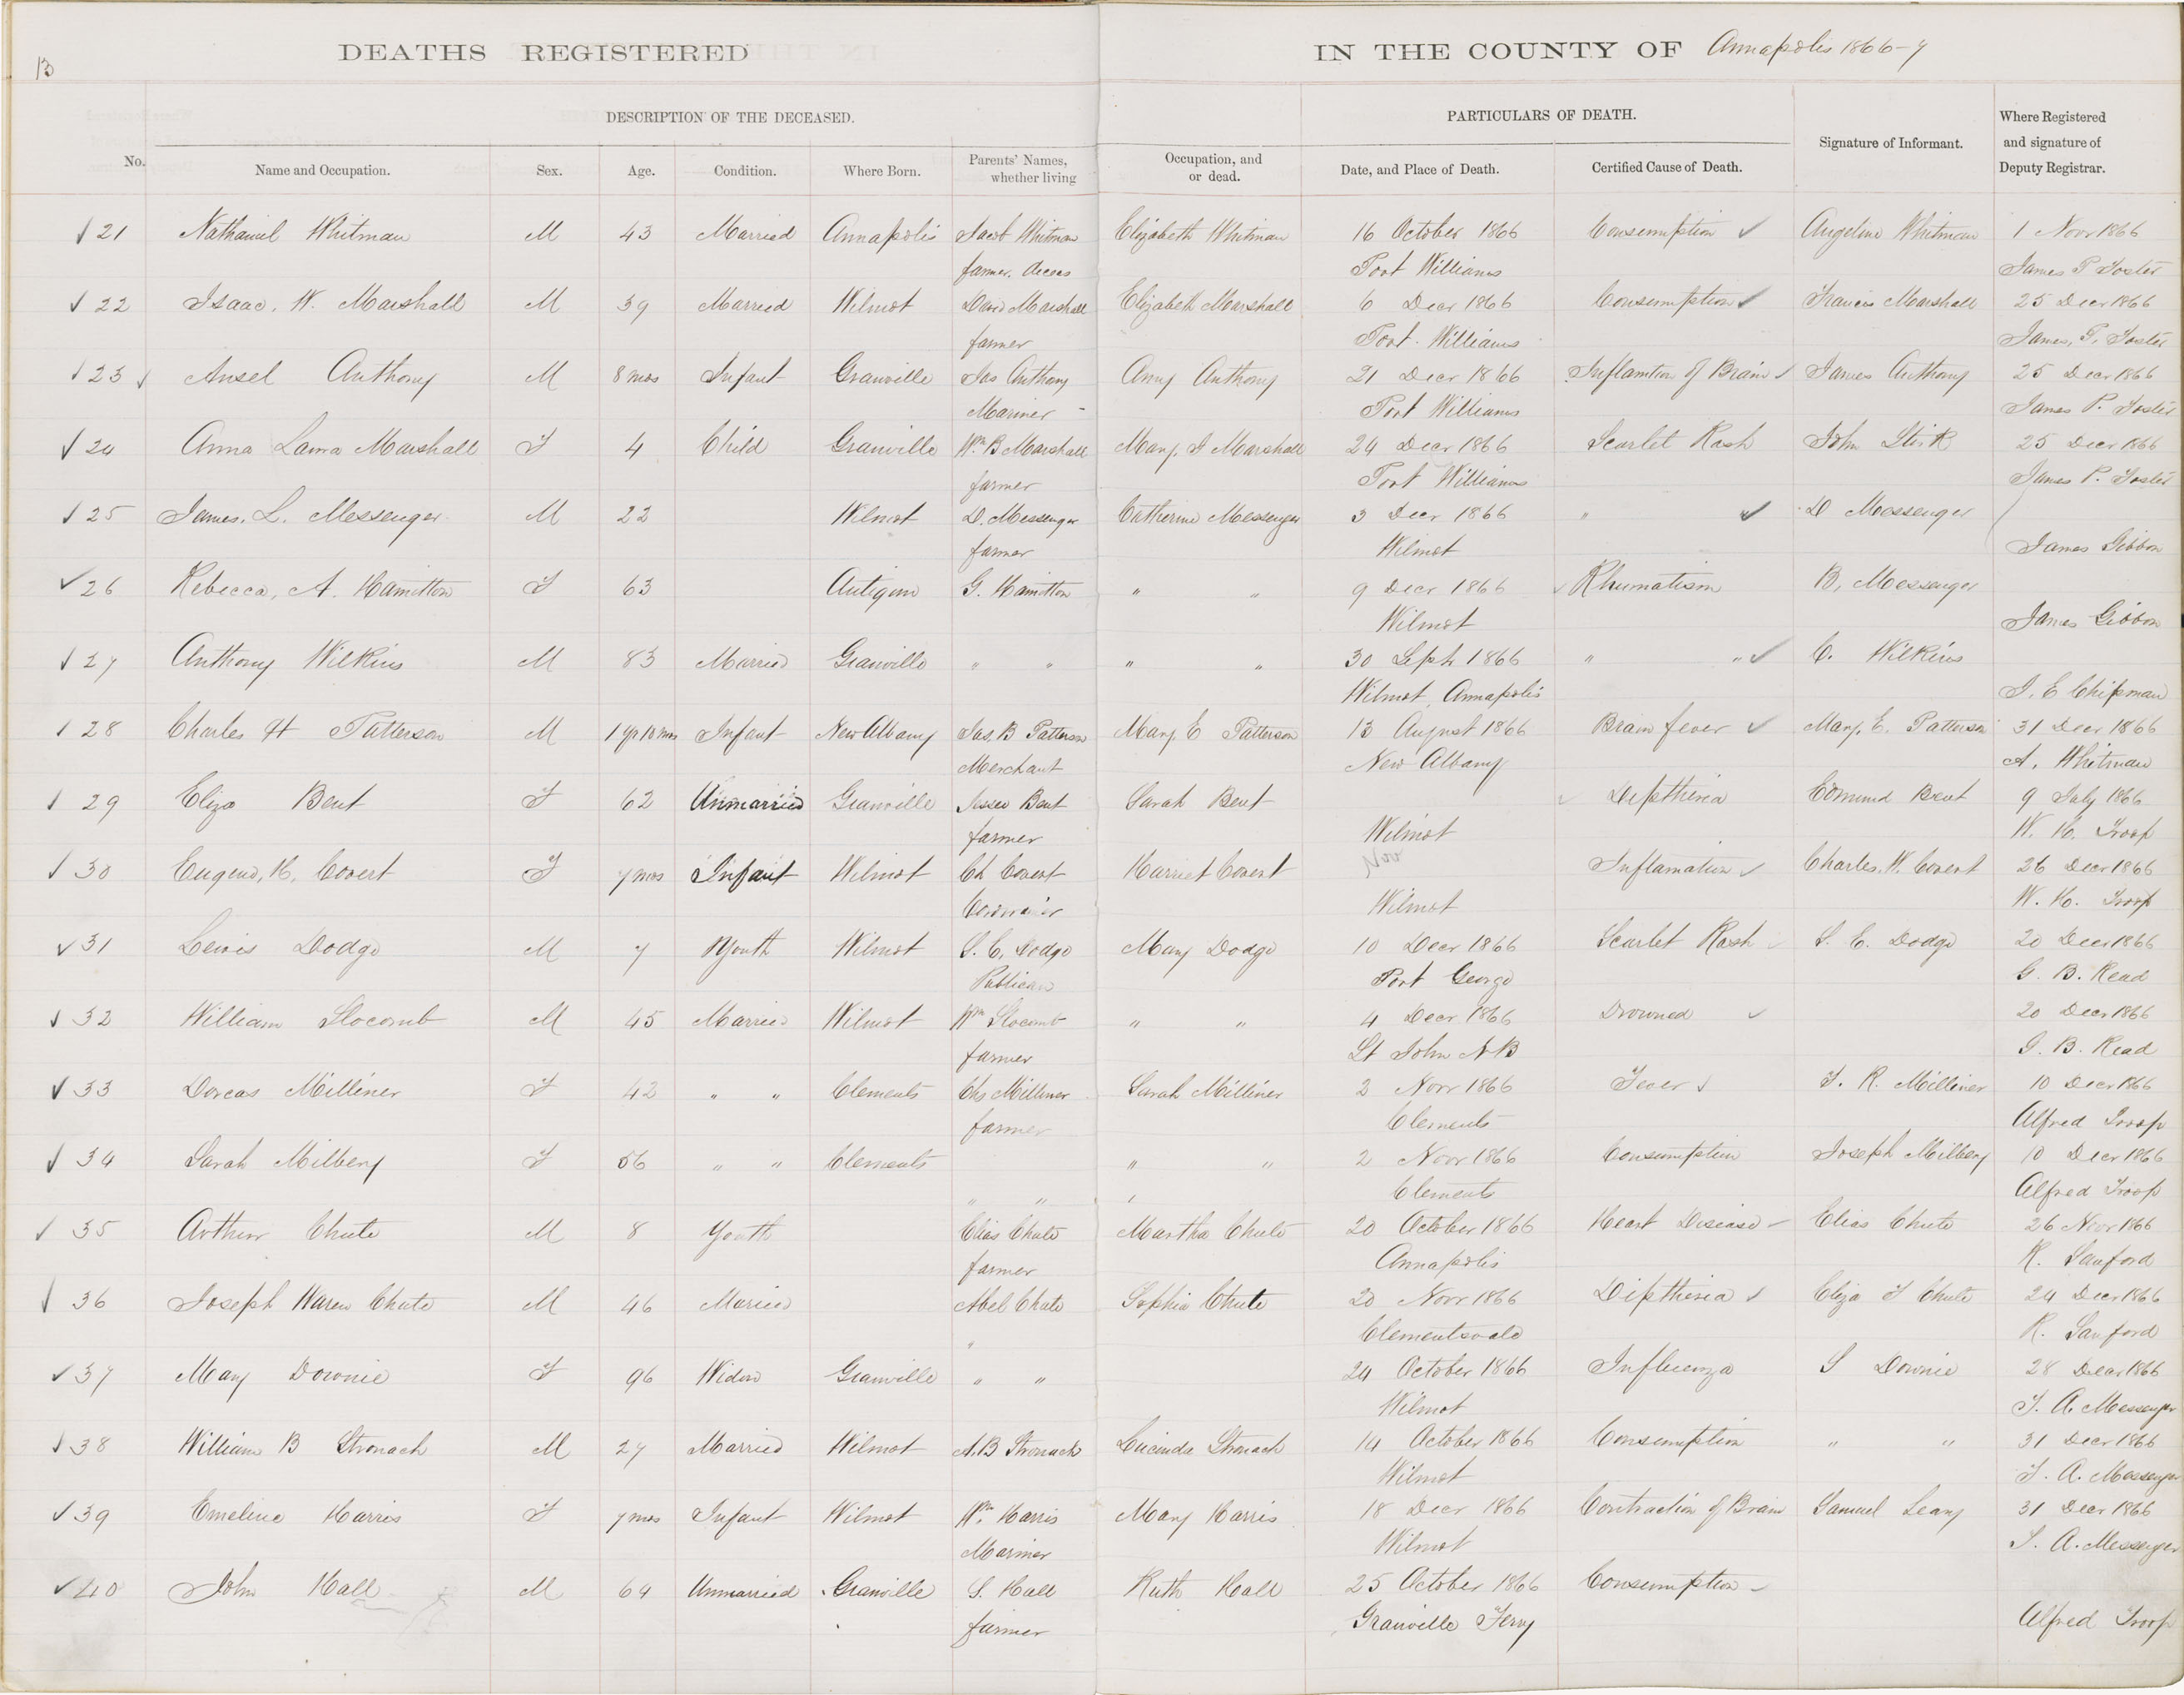 13
DEATHS REGISTERED IN THE COUNTY OF Annapolis 1866-7
DESCRIPTION OF THE DECEASED. PARTICULARS OF DEATH.
No. Name and Occupation. Sex. Age. Condition. Where Born. Parents' Names, whether living Occupation, and or dead. Date, and Place of Death. Certified Cause of Death. Signature of Informant. Where Registered and signature of Deputy Registrar.
21 Nathaniel Whitman M 43 Married Annapolis Jacob Whitman Elizabeth Whitman 16 October 1866 Consumption Angeline Whitman 1 Novr 1866
farmer. Port Williams James P Foster
22 Isaac. W. Marshall M 39 Married Wilmot David Marshall Elizabeth Marshall 6 Decr 1866 Consumption Francis Marshall 25 Decr 1866
farmer Port Williams James. P. Foster
23 Ansel Anthony M 8 mos Infant Granville Jas Anthony Amy Anthony 21 Decr 1866 Inflamtion of Brain James Anthony 25 Decr 1866
Mariner Port Williams James P. Foster
24 Anna Marshall F 4 Child Granville Wm B Marshall Mary. Marshall 24 Decr 1866 Scarlet Rash John 25 Decr 1866
farmer Port Williams James P. Foster
25 James. L. Messenger M 22 Wilmot D. Messenger Catherine Messenger 3 Decr 1866 " D Messenger
farmer Wilmot James Gibbon
26 Rebecca, A. Hamilton F 63 G. Hamilton " " 9 Decr 1866 Rhumatism B. Messenger
Wilmot James Gibbon
27 Anthony Wilkins M 83 Married Granville " " " " 30 Septr 1866 " " C. Wilkins
Wilmot, Annapolis J. E Chipman
28 Charles H Patterson M 1 yr 10 mos Infant New Albany Jas. B Patterson Mary. E Patterson 13 August 1866 Brain fever Mary. E. Patterson 31 Decr 1866
Merchant New Albany A. Whitman
29 Eliza Bent F 62 Unmarried Granville Jesse Bent Sarah Bent Diptheria Edmund Bent 9 July 1866
farmer Wilmot W. H. Troop
30 H. Covert F 7 mos Infant Wilmot Ch Covert Harriet Covert Nov Inflamation Charles. W. Covert 26 Decr 1866
Wilmot W. H. Troop
31 Lewis Dodge M 7 Youth Wilmot S. C. Dodge Mary Dodge 10 Decr 1866 Scarlet Rash S. C. Dodge 20 Decr 1866
Publican Port George G. B. Read
32 William Slocomb M 45 Married Wilmot Wm Slocomb " " 4 Decr 1866 Drowned 20 Decr 1866
farmer St John NB G. B. Read
33 Dorcas Milliner F 42 " " Clements Chs Milliner Sarah Milliner 2 Novr 1866 Fever F. R. Milliner 10 Decr 1866
farmer Clements Alfred Troop
34 Sarah Milbery F 56 " " Clements " " 2 Novr 1866 Consumption Joseph Milbery 10 Decr 1866
" " Clements Alfred Troop
35 Arthur Chute M 8 Youth Elias Chute Martha Chute 20 October 1866 Heart Disease Elias Chute 26 Novr 1866
farmer Annapolis R. Sanford
36 Joseph Waren Chute M 46 Married Abel Chute Sophia Chute 20 Novr 1866 Diptheria Eliza F Chute 24 Decr 1866
" Clementsvale R. Sanford
37 Mary Downie F 96 Widow Granville " " 24 October 1866 Influenza S Downie 28 Decr 1866
Wilmot T. A. Messenger
38 William B Stronach M 27 Married Wilmot A. B Stronach Lucinda Stronach 14 October 1866 Consumption " " 31 Decr 1866
Wilmot T. A. Messenger
39 Emeline Harris F 7 mos Infant Wilmot Wm Harris Mary Harris 18 Decr 1866 Contraction of Brain Samuel 31 Decr 1866
Mariner Wilmot T. A. Messenger
40 John Hall M 64 Unmarried Granville S. Hall Ruth Hall 25 October 1866 Consumption
farmer Granville Ferry Alfred Troop